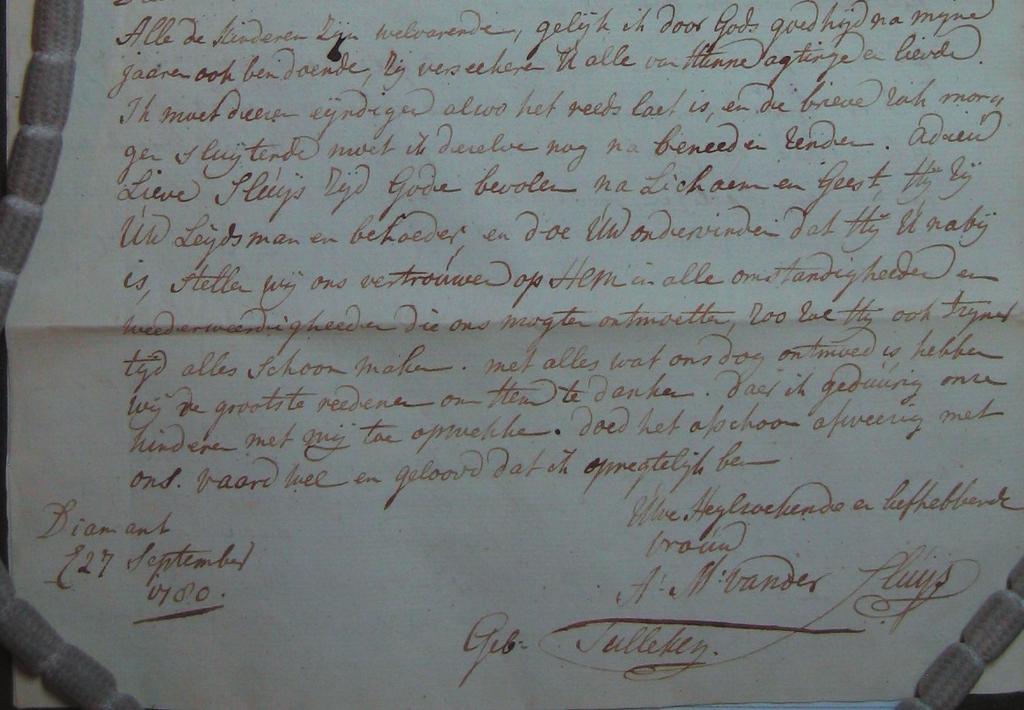 Alle de kinderen zijn welvarende, gelijk ik door Gods goedhijd na mijne
jaaren ook ben doende, zij verseekeren U alle van Hunne agtinge en lievde.
Ik moet deesen eyndigen alwo het reeds laet is, en die brieve zak morg
gen sluytende moet ik dieselve nog na beneeden zenden. Adieu
Lieve Sluijs zijd Gode bevolen na Lichaem en Geest, Hij zij
Uw Leijdsman en behoeder, en doe Uw ondervinden dat Hij U nabij
is, stellen wij ons vertrouwen op Hem in alle omstandigheeden en
weederweerdigheeden die ons mogten ontmoetten, zoo zal Hij ook t zijner
tijd alles schoon maken. met alles wat ons dog ontmoed is hebben
wij de grootste reedenen om Hem te danken. daer ik geduurig onse
kinderen met mij toe opwekke. doed het alschoon afweesig met
ons. vaard wel en geloovd dat ik opregtelijk ben
Uwe Heylsoekende en liefhebbende
vrouw
A: M: vander Sluijs
Geb: Tulleken.
Diamant
27 September
1780.